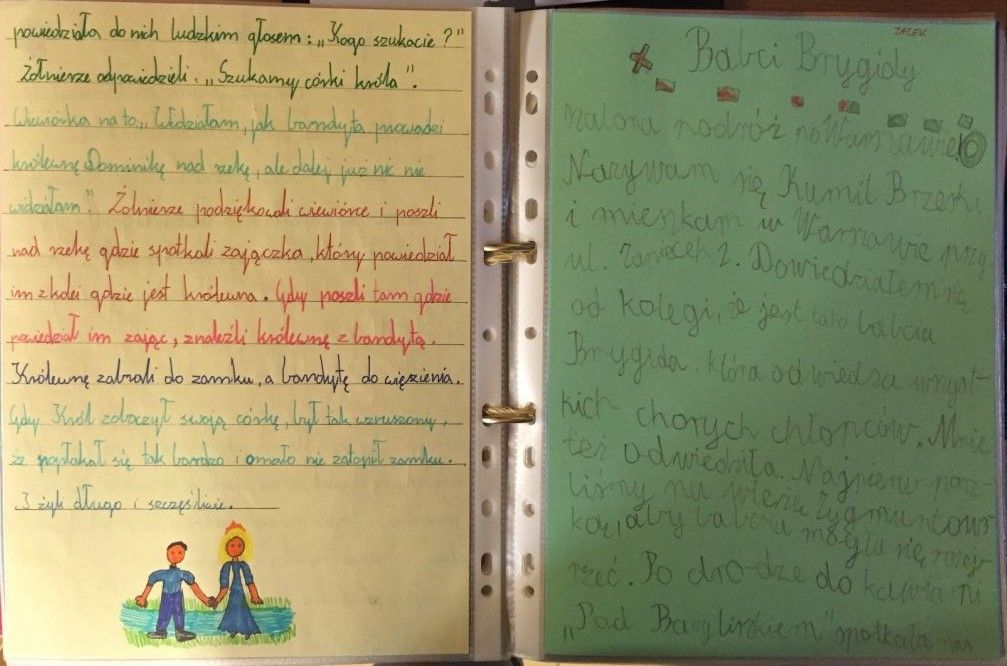 powiedziała do nich ludzkim głosem: „Kogo szukacie?"
Żołnierze odpowiedzieli: „Szukamy córki króla".
Wiewiórka na to „Widziałam, jak bandyta prowadzi
królewnę Dominikę nad rzekę, ale dalej już nic nie
widziałam". Żołnierze podziękowali wiewiórce i poszli
nad rzekę gdzie spotkali zajączka, który powiedział
im z kolei gdzie jest królewna. Gdy poszli tam gdzie
powiedział im zając, znaleźli królewnę z bandytą.
Królewnę zabrali do zamku, a bandytę do więzienia.
Gdy Król zobaczył swoją córkę, był tak wzruszony,
że popłakał się tak bardzo i omało nie zatopił zamku.
I żyli długo i szczęśliwie.
JACEK
Babci Brygidy
szalona podróż po Warszawie!
Nazywam się Kamil Brzęrki
i mieszkam w Warszawie przy
ul. Zapiecek 2. Dowiedziałem się
od kolegi, że jest taka babcia
Brygida, która odwiedza wszyst-
kich chorych chłopców. Mnie
też odwiedziła. Najpierw posz-
liśmy na wieżę Zygmuntows-
ką, aby babcia mogła się rozej-
rzeć. Po dro-dze do kawiarni
„Pod Bazyliszkiem" spotkała nas